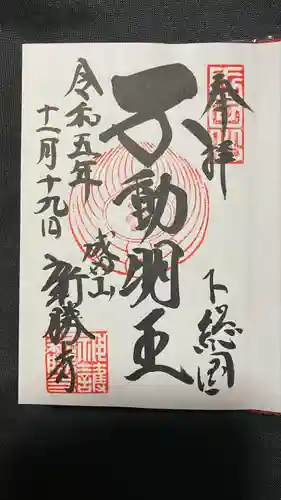 奉拝
下総国
不動明王
成田山
新勝寺
令和五年
十一月十九日